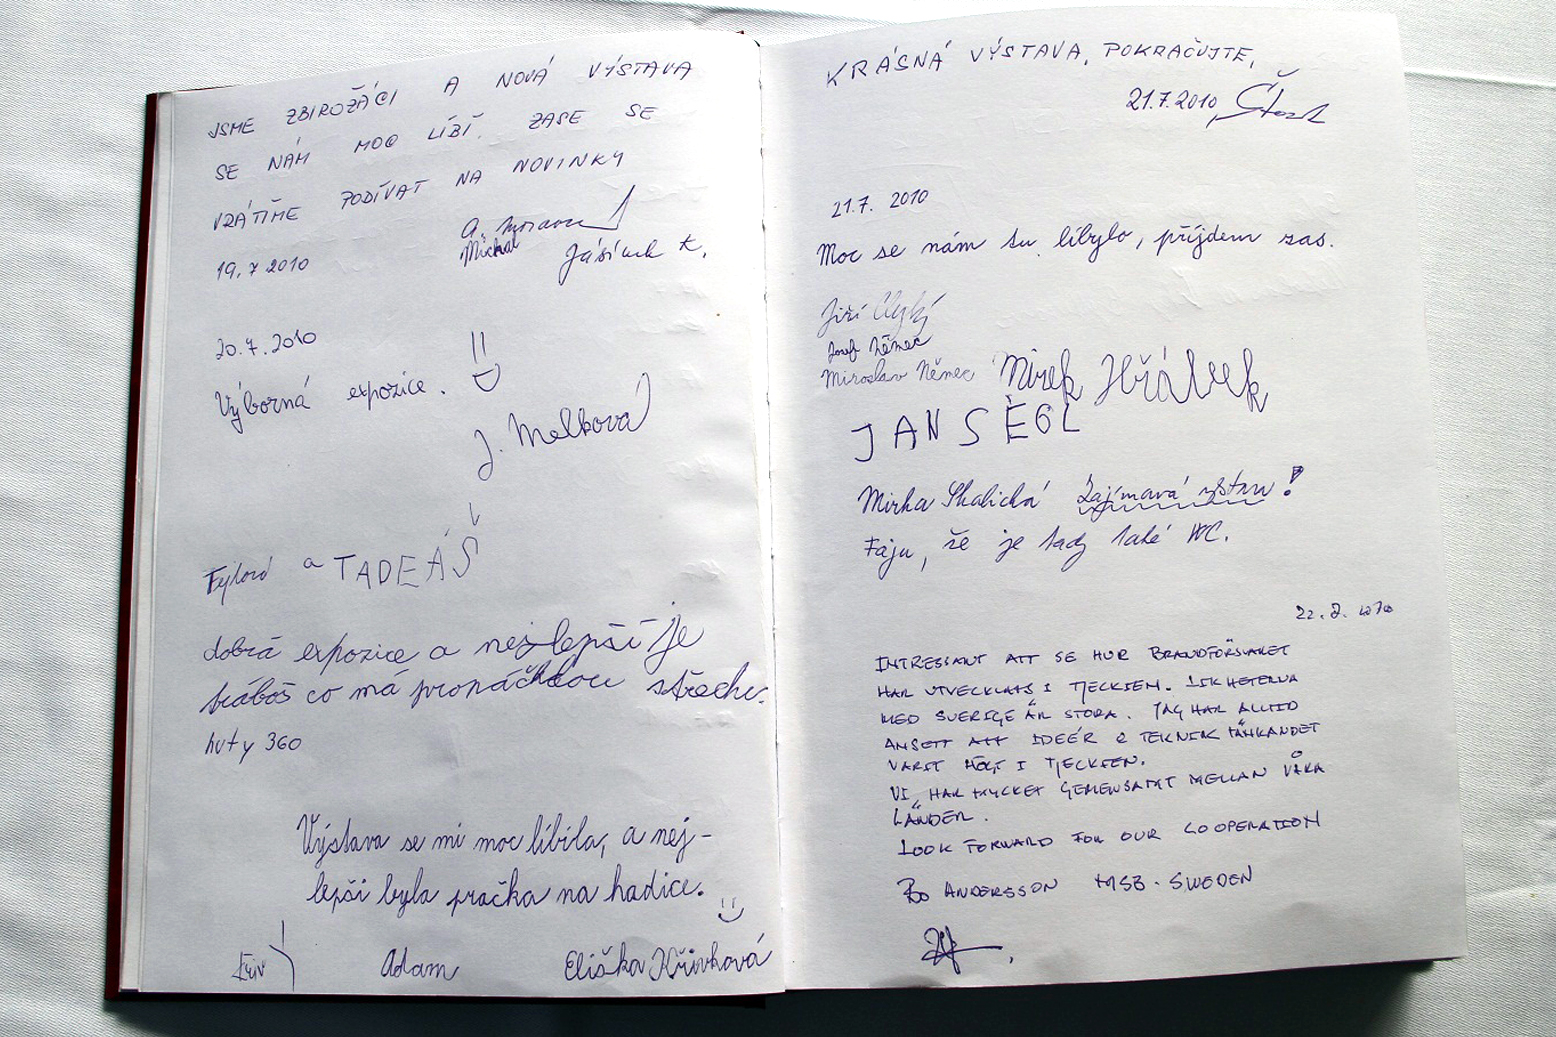 JSME ZBIROŽÁCI A NOVÁ VÝSTAVA
SE NÁM MOC LÍBÍ. ZASE SE
VRÁTÍME PODÍVAT NA NOVINKY
Michal
19.7 2010
20.7.2010
Výborná expozice.
J. Melková
a TADEÁŠ
dobrá expozice a nejlepší je
co má střechu.
huty 360
Výstava se mi moc líbila, a nej-
lepší byla pračka na hadice.
Adam Eliška Křivková
KRÁSNÁ VÝSTAVA, POKRAČUJTE,
21.7.2010
21.7. 2010
Moc se nám tu líbylo, příjdem zas.
Jiří
Josef Němec
Miroslav Němec Mirek
JAN
Mirka Skalická Zajímavá !
Fáju, že je tady také WC.
INTRESSANT ATT SE HUR BRANDFÖRSVARET
HAR UTVECKLATS I TJECKIEN. LIKHETERNA
MED SVERIGE ÄR STORA. JAG HAR ALLTID
ANSETT ATT IDEÉR & TEKNIK TÄNKANDET
VARIT HÖGT I TJECKIEN.
VI HAR MYCKET GEMENSAMT MELLAN VÅRA
LÄNDER.
LOOK FORWARD FOR OUR COOPERATION
BO ANDERSSON MSB - SWEDEN